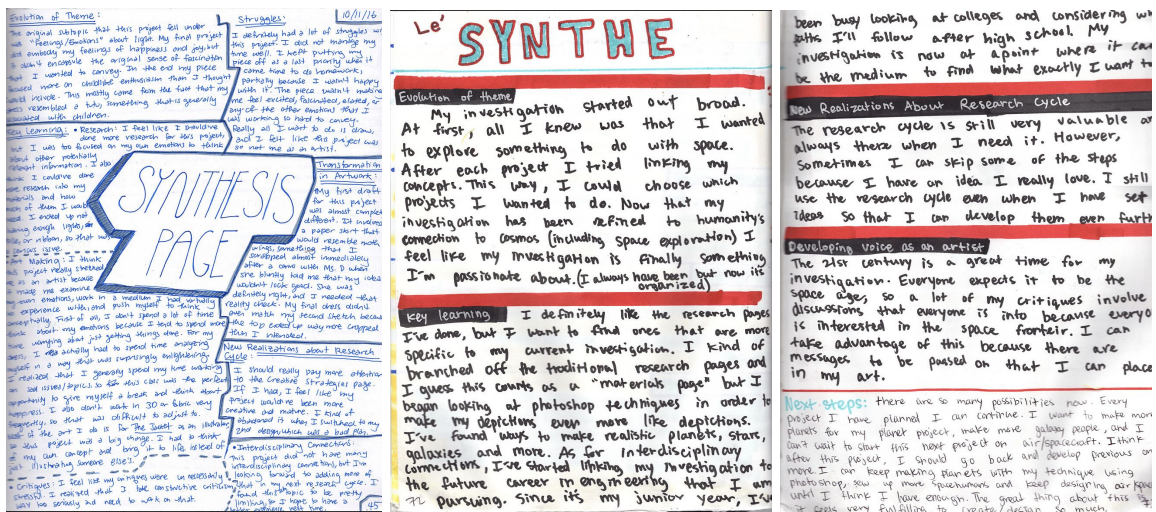 Evolution of Theme:
The original subtopic that this project fell under
was "Feelings/Emotions" about light. My final project
did embody my feelings of happiness and joy, but
it didn't encapsule the original sense of fascination
that I wanted to convey. In the end my piece
focused more on childlike enthusiasm than I thought
would include. This mostly came from the fact that my
resembled a tutu, something that is generally
associated with children.
Key Learning: • Research: I feel like I could've
done more research for this project,
but I was too focused on my own emotions to think
about other potentially
information. I also
I could've done
research into my
materials and how
of them I would
I ended up not
enough lights,
or ribbon, so that was
issue.
• Making: I think
this project really stretched
me as an artist because
it made me examine
own emotions, work in a medium I had virtually
experience with, and push myself to think
conceptually. First of all, I don't spend a lot of time
about my emotions because I tend to spend more
time worrying about just getting things done. For my
I actually had to spend time analyzing
myself in a way that was surprisingly enlightening.
I realized that I generally spend my time working
on sad issues/topics so this class was the perfect
opportunity to give myself a break and think about
happiness. I also don't work in 3D or fabric very
frequently, so that was difficult to adjust to.
of the art I do is for The Joust as an illustrator
so this project was a big change. I had to think
my own concept and bring it to life instead of
just illustrating someone else's.
• Critiques: I feel like my critiques were unnecessarily
stressful. I realized that I take constructive criticism
way too seriously and need to work on that.
SYNTHESIS
PAGE
10/11/16
Struggles:
I definitely had a lot of struggles w/
this project. I did not manage my
time well. I kept putting my
piece off as a last priority when it
came time to do homework,
partially because I wasn't happy
with it. The piece wasn't making
me feel excited, fascinated, elated, or
any of the other emotions that I
was working so hard to convey.
Really all I want to do is draw,
and I felt like this project was
not me as an artist.
Transformation
in Artwork:
My first draft
for this project
was almost completely
different. It involved
a paper start that
would resemble moth
wings, something that I
scrapped almost immediately
after a convo with Ms. D when
she bluntly told me that my idea
wouldn't look good. She was
definitely right, and I needed that
reality check. My final dress didn't
even match my second sketch because
the top ended up way more cropped
than I intended.
New Realizations about Research
Cycle:
I should really pay more attention
to the creative strategies page.
If I had, I feel like my
project would've been more
creative and mature. I kind of
abandoned it when I switched to my
2nd design, which was a bad plan.
• Interdisciplinary Connections:
This project did not have many
interdisciplinary connections, but I'm
looking forward to adding more of
that in my next research cycle. I
found this topic to be pretty
limiting so I hope to have a
next time.
45
Le' SYNTHE
Evolution of theme
My investigation started out broad.
At first, all I knew was that I wanted
to explore something to do with space.
After each project I tried linking my
concepts. This way, I could choose which
projects I wanted to do. Now that my
investigation has been refined to humanity's
connection to cosmos (including space exploration) I
feel like my investigation is finally something
I'm passionate about. (I always have been but now it's
organized)
Key learning I definitely like the research pages
I've done, but I want to find ones that are more
specific to my current investigation. I kind of
branched off the traditional research pages and
I guess this counts as a "materials page" but I
began looking at photoshop techniques in order to
make my depictions even more like depictions.
I've found ways to make realistic planets, stars,
galaxies and more. As for Interdisciplinary
connections, I've started linking my investigation to
the future career in engineering that I am
72 pursuing. Since it's my junior year, I've
been busy looking at colleges and considering wh
paths I'll follow after high school. My
investigation is now at a point where it can
be the medium to find what exactly I want to
New Realizations About Research Cycle
The research cycle is still very valuable an
always there when I need it. However,
sometimes I can skip some of the steps
because I have an idea I really love. I still
use the research cycle even when I have set
ideas so that I can develop them even furth
Developing voice as an artist
The 21st century is a great time for my
investigation. Everyone expects it to be the
space age, so a lot of my critiques involve
discussions that everyone is into because everyo
is interested in the space fronteir. I can
take advantage of this because there are
messages to be passed on that I can place
in my art.
Next steps: there are so many possibilities now. Every
project I have planned I can continue. I want to make more
planets for my planet project, make more galaxy people, and I
can't wait to start this next project on air/spacecraft. I think
after this project, I should go back and develop previous on
more. I can keep making planets with my technique using
photoshop, sew up more spacehumans and keep designing air/space
until I think I have enough. The great thing about this is
it feels very fulfilling to create/design so much.